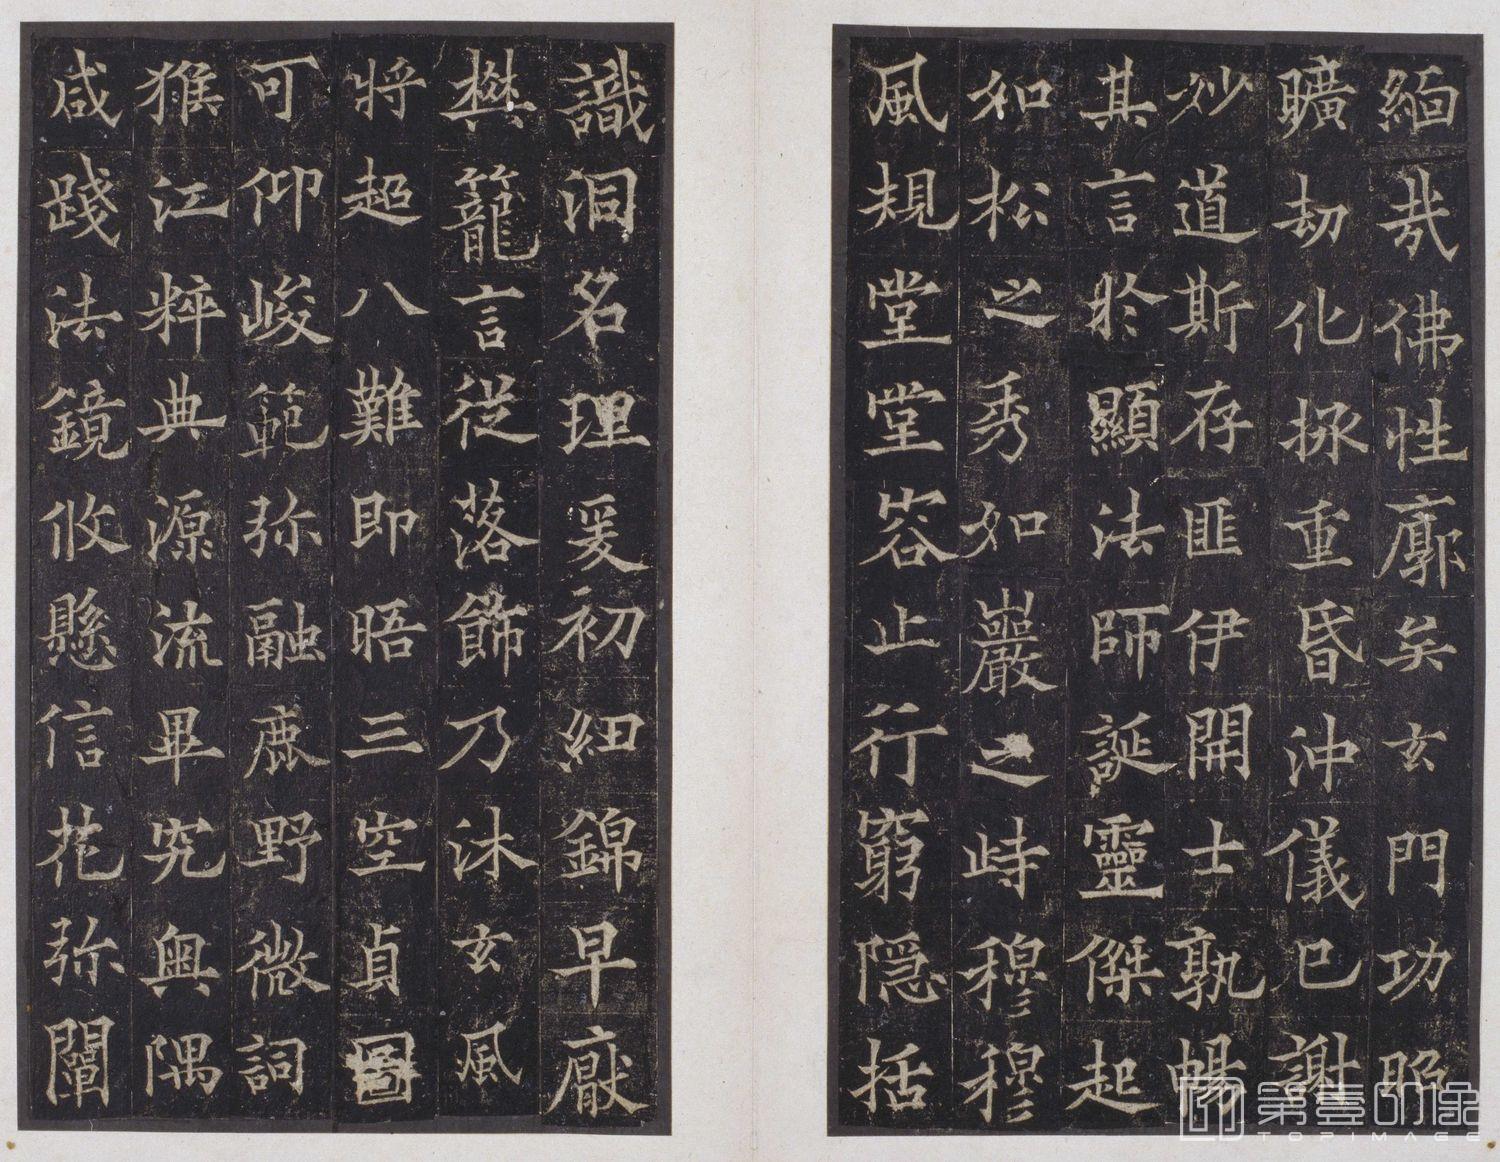 緬哉佛性廓矣玄門功昭
曠劫化拯重昏沖儀已謝
妙道斯存匪伊開士孰暢
其言於顯法師誕靈傑起
如松之秀如巖之峙穆穆
風規堂堂容止行窮隱括
識洞名理爰初細錦早厭
樊籠言從落飾乃沐玄風
將超八難即晤三空貞圖
可仰峻範弥融鹿野微詞
猴江粹典源流畢究奧隅
咸踐法鏡攸懸信花弥闡
第壹印像
TOPIMAGE